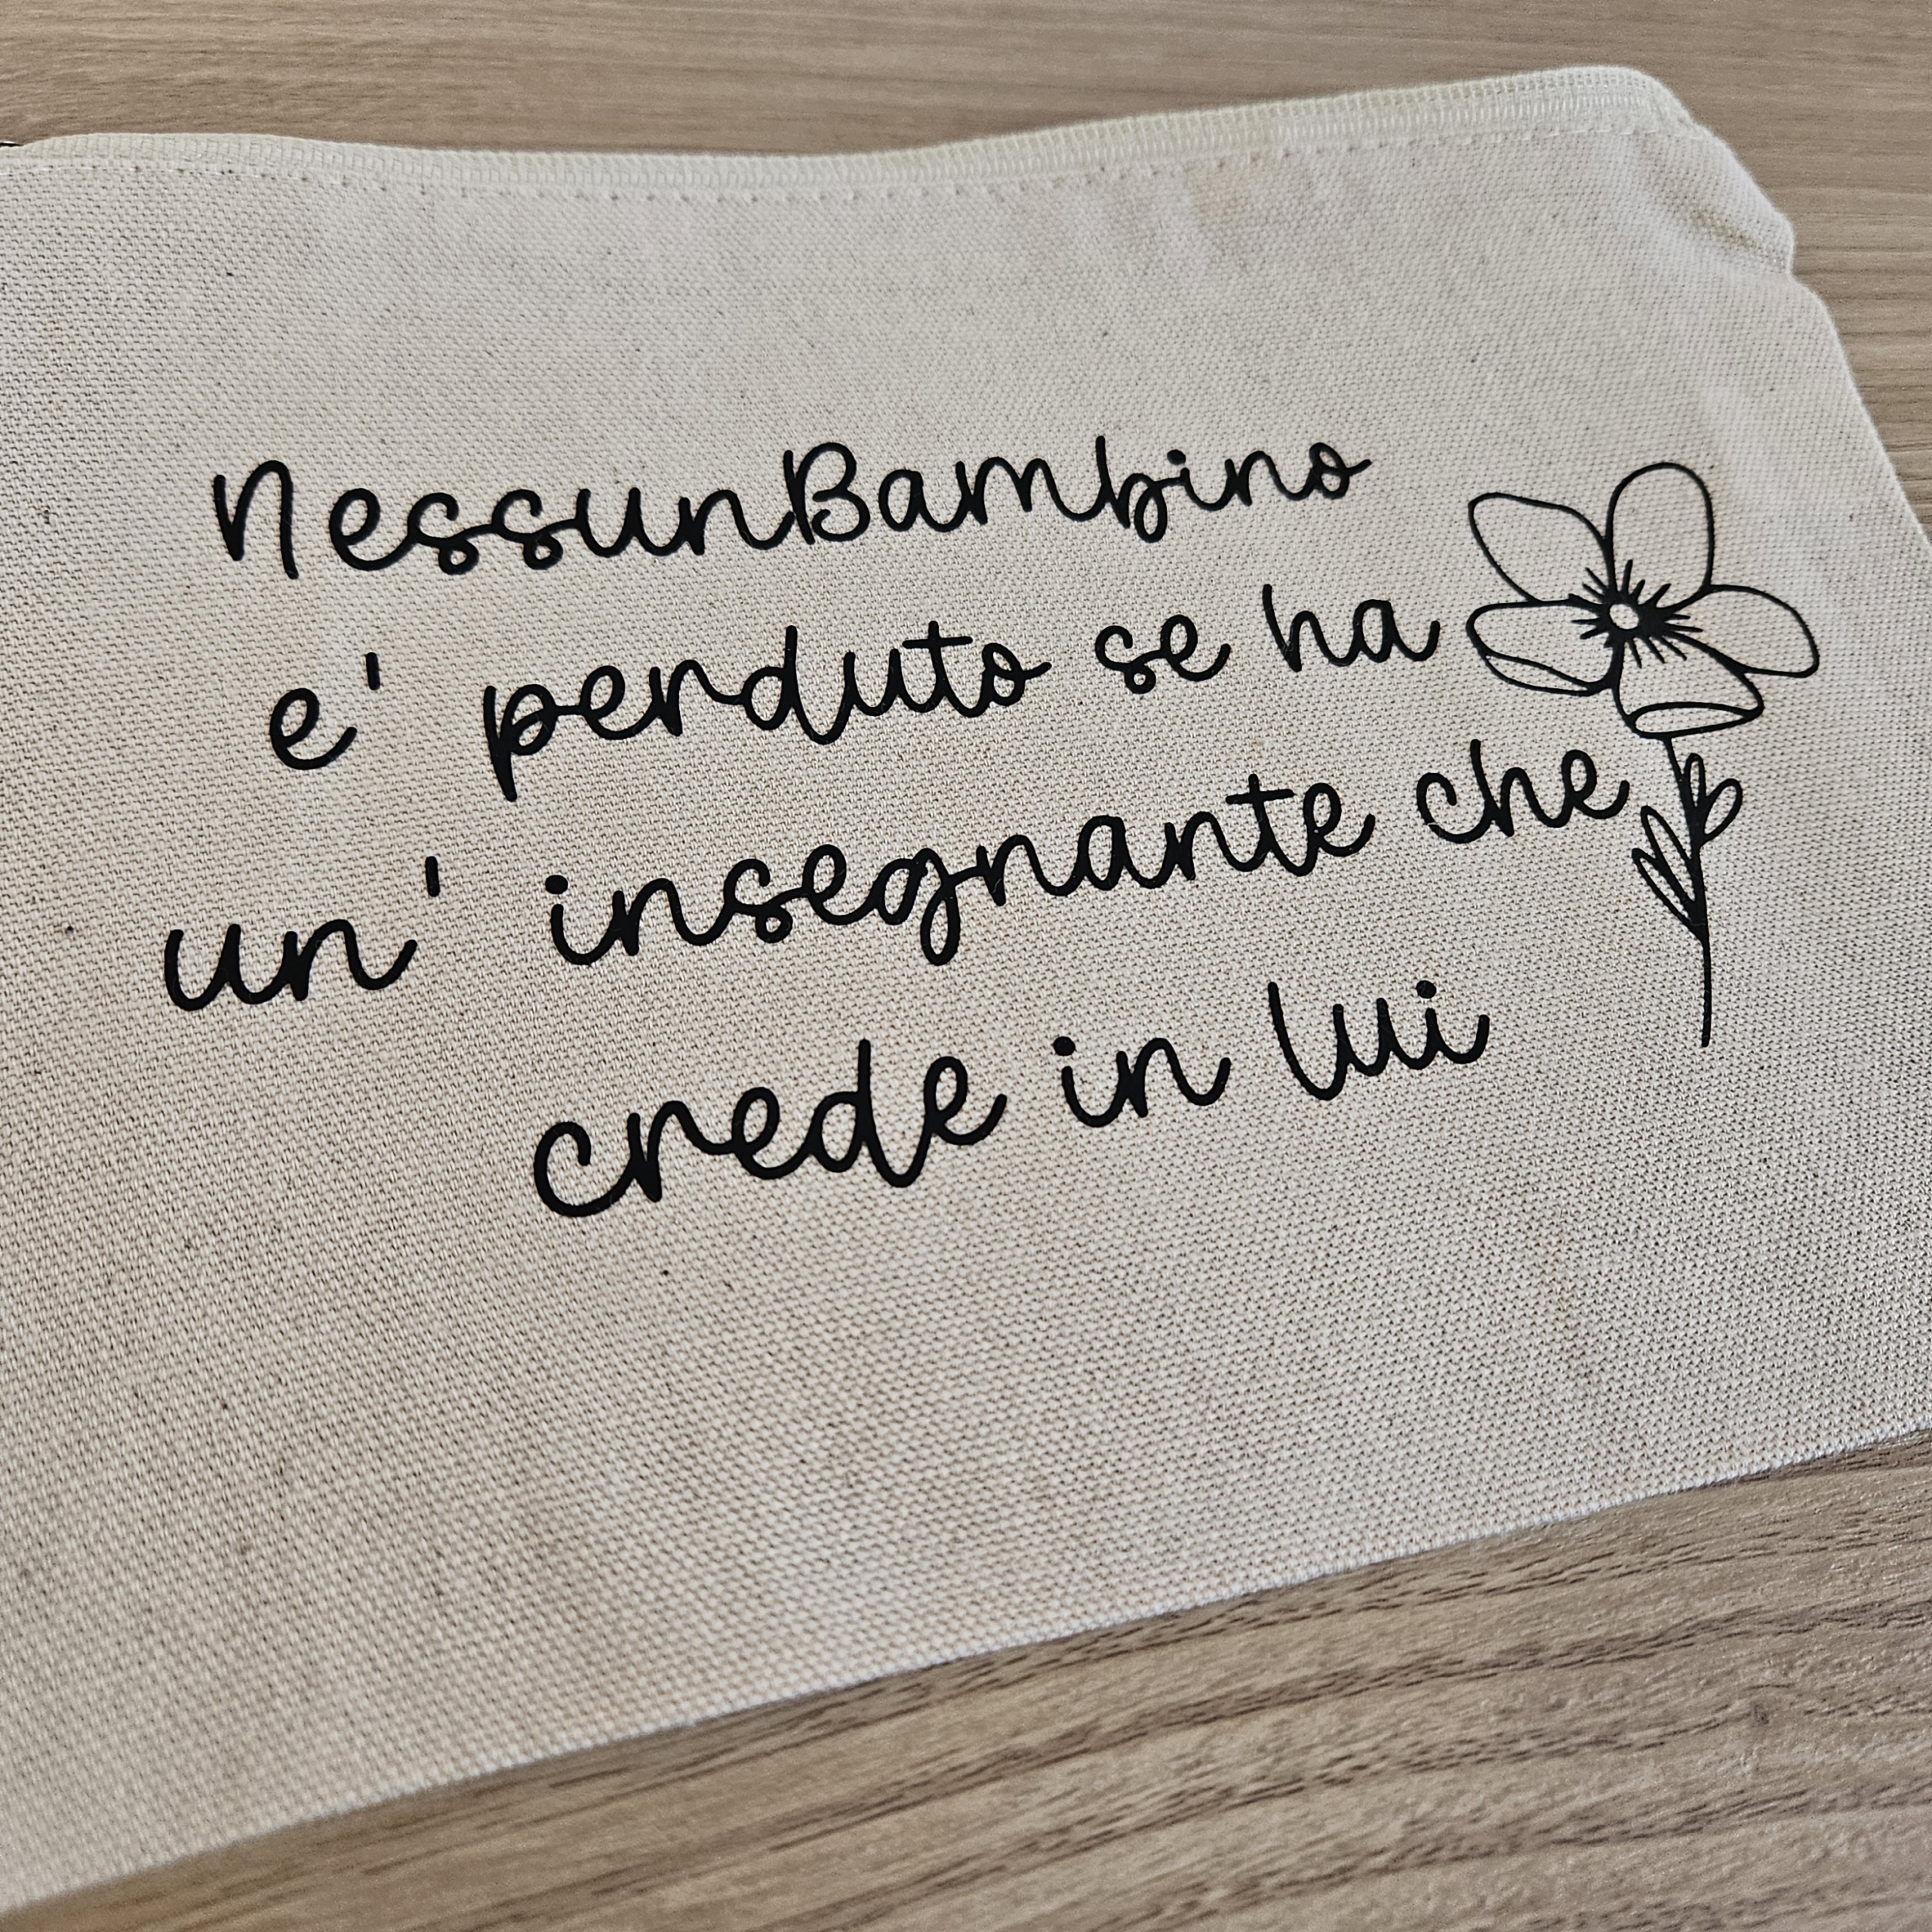 NessunBambino
e' perduto se ha
un' insegnante che
crede in lui